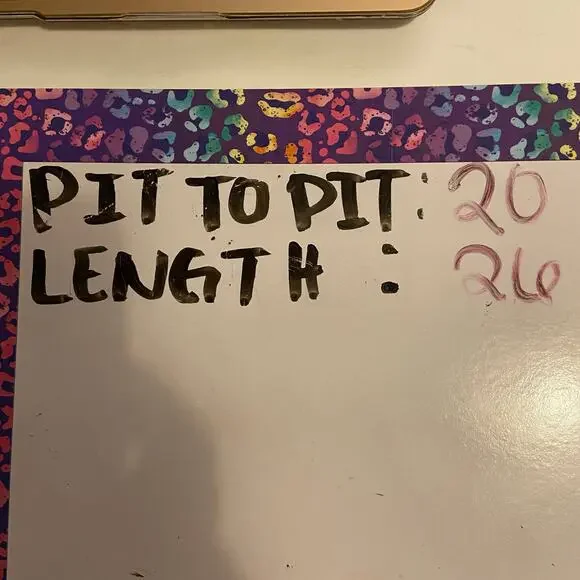 PIT TO PIT: 20
LENGTH : 26